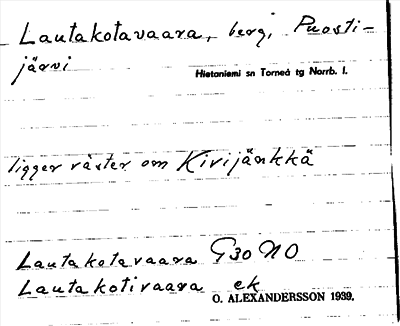 Lautakotavaara, berg, Puosti-
järvi
Hietaniemi sn Torneå tg Norrb. l.
ligger väster om Kivijänkkä
Lautakotavaara G30 NO
Lautakotivaara ek
O. ALEXANDERSSON 1939.